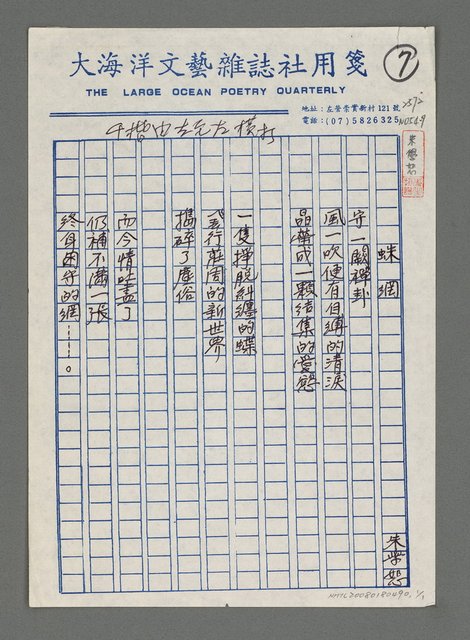 大海洋文藝雜誌社用箋
THE LARGE OCEAN POETRY QUARTERLY
地址：左營崇實新村121號
電話：(07)5826325
7
朱學恕
蛛網
朱学恕
守一闕禪卦
風一吹便有自縛的清淚
晶華成一顆結集的愛慾
一隻掙脫糾纏的蝶
飛行莊周的新世界
搗碎了塵俗
而今情吐盡了
仍補不滿一張
終身困守的網……。
NMTL20080180490, 1/1